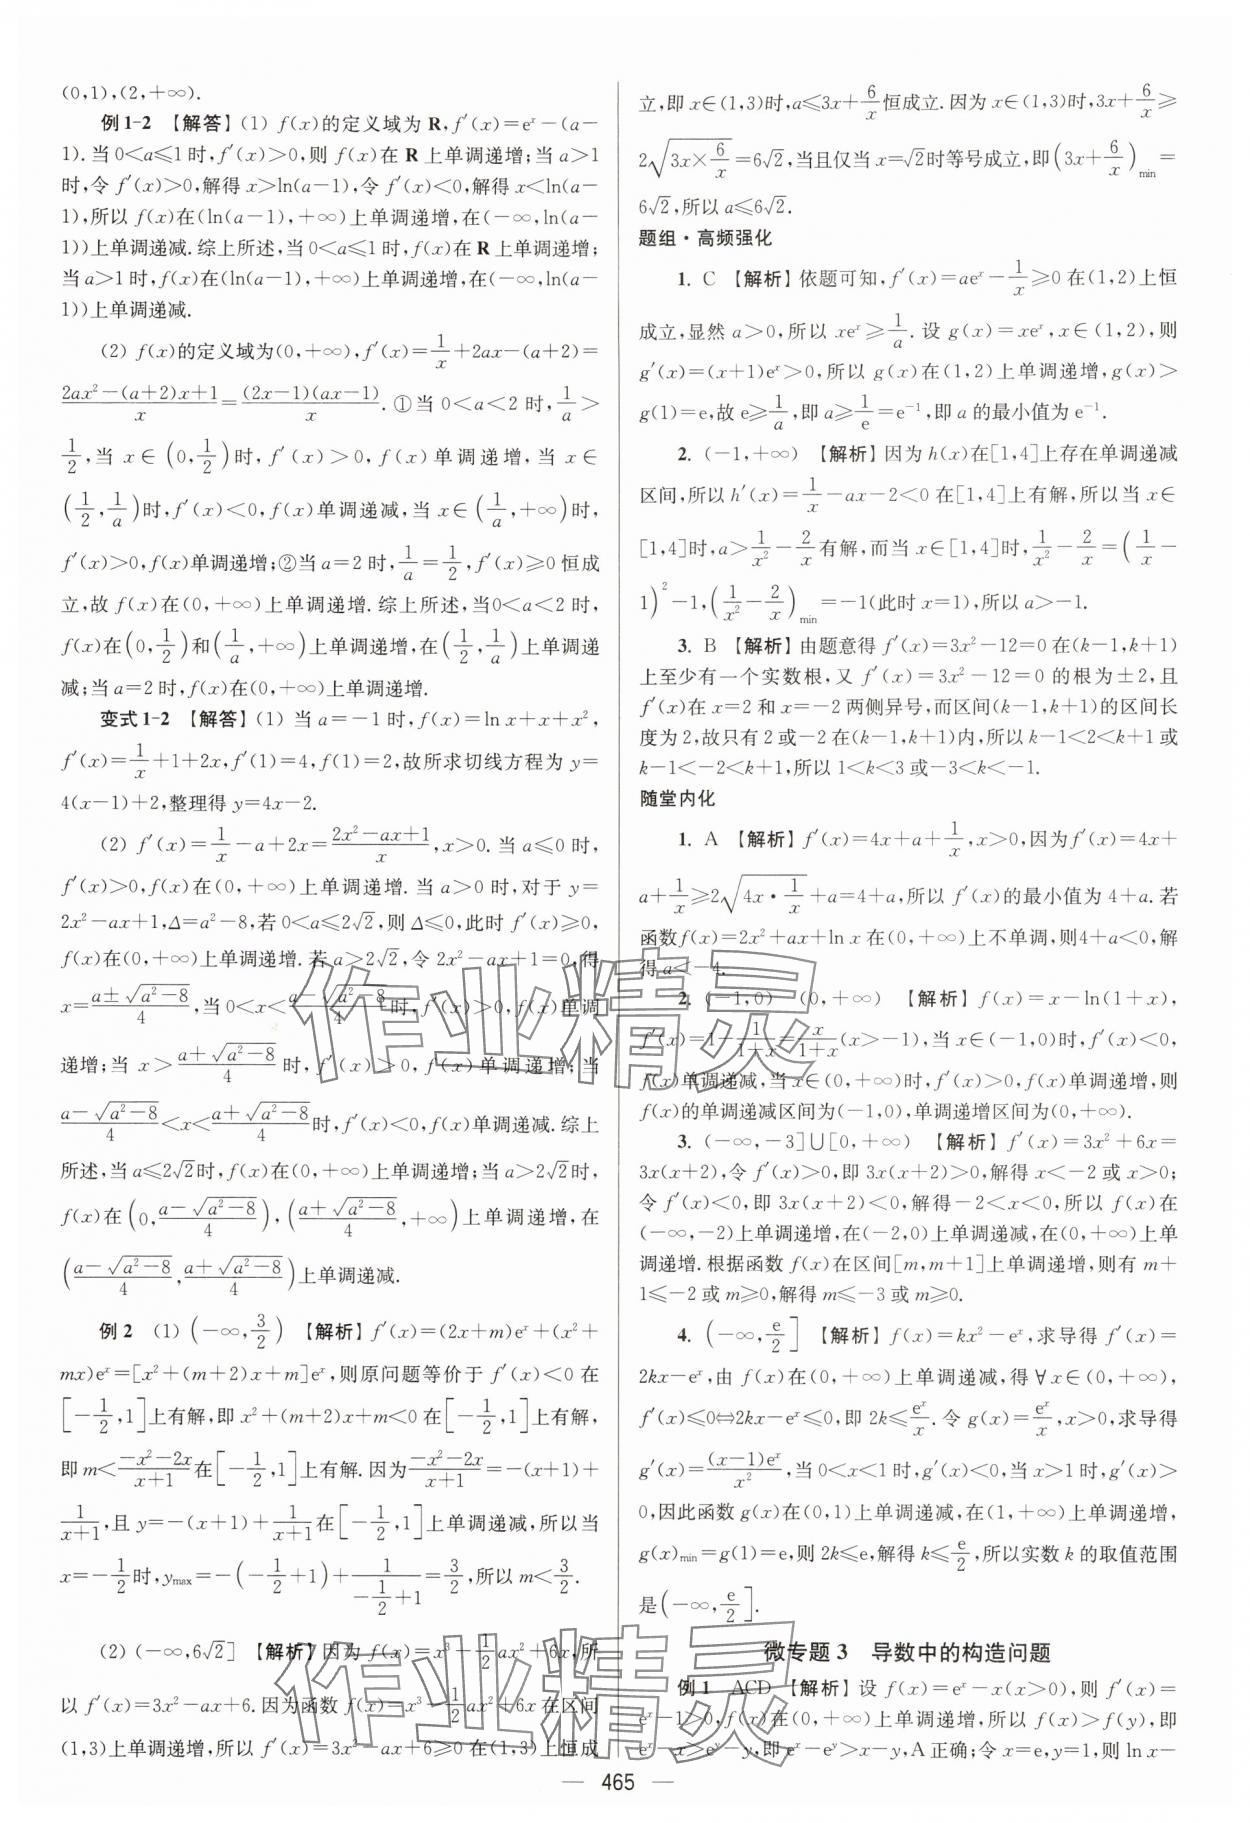 (0,1),(2,+∞).
例1-2 【解答】(1) f(x)的定义域为 R,f′(x)=eˣ-(a-
1).当0<a≤1时,f′(x)>0,则 f(x)在 R 上单调递增;当a>1
时,令 f′(x)>0,解得 x>ln(a-1),令 f′(x)<0,解得 x<ln(a-
1),所以 f(x)在(ln(a-1),+∞)上单调递增,在(-∞,ln(a-
1))上单调递减.综上所述,当0<a≤1时,f(x)在 R 上单调递增;
当a>1时,f(x)在(ln(a-1),+∞)上单调递增,在(-∞,ln(a-
1))上单调递减.
(2) f(x)的定义域为(0,+∞),f′(x)=1/x+2ax-(a+2)=
(2ax²-(a+2)x+1)/x=((2x-1)(ax-1))/x.①当0<a<2时,1/a>
1/2,当 x∈(0,1/2)时,f′(x)>0,f(x)单调递增,当 x∈
(1/2,1/a)时,f′(x)<0,f(x)单调递减,当x∈(1/a,+∞)时,
f′(x)>0,f(x)单调递增;②当a=2时,1/a=1/2,f′(x)≥0恒成
立,故 f(x)在(0,+∞)上单调递增.综上所述,当0<a<2时,
f(x)在(0,1/2)和(1/a,+∞)上单调递增,在(1/2,1/a)上单调递
减;当a=2时,f(x)在(0,+∞)上单调递增.
变式1-2 【解答】(1) 当 a=-1时,f(x)=ln x+x+x²,
f′(x)=1/x+1+2x,f′(1)=4,f(1)=2,故所求切线方程为 y=
4(x-1)+2,整理得 y=4x-2.
(2) f′(x)=1/x-a+2x=(2x²-ax+1)/x,x>0.当 a≤0时,
f′(x)>0,f(x)在(0,+∞)上单调递增.当 a>0时,对于 y=
2x²-ax+1,Δ=a²-8,若0<a≤2√2,则 Δ≤0,此时 f′(x)≥0,
f(x)在(0,+∞)上单调递增.若a>2√2,令 2x²-ax+1=0,得
x=(a±√(a²-8))/4,当0<x<(a-√(a²-8))/4时,f′(x)>0,f(x)单调
递增;当 x>(a+√(a²-8))/4时,f′(x)>0,f(x)单调递增;当
(a-√(a²-8))/4<x<(a+√(a²-8))/4时,f′(x)<0,f(x)单调递减.综上
所述,当a≤2√2时,f(x)在(0,+∞)上单调递增;当a>2√2时,
f(x)在(0,(a-√(a²-8))/4),((a+√(a²-8))/4,+∞)上单调递增,在
((a-√(a²-8))/4,(a+√(a²-8))/4)上单调递减.
例2 (1) (-∞,3/2) 【解析】f′(x)=(2x+m)eˣ+(x²+
mx)eˣ=[x²+(m+2)x+m]eˣ,则原问题等价于 f′(x)<0在
[-1/2,1]上有解,即x²+(m+2)x+m<0在[-1/2,1]上有解,
即m<(-x²-2x)/(x+1)在[-1/2,1]上有解.因为(-x²-2x)/(x+1)=-(x+1)+
1/(x+1),且 y=-(x+1)+1/(x+1)在[-1/2,1]上单调递减,所以当
x=-1/2时,yₘₐₓ=-(-1/2+1)+1/(-1/2+1)=3/2,所以m<3/2.
(2) (-∞,6√2] 【解析】因为 f(x)=x³-1/2ax²+6x,所
以 f′(x)=3x²-ax+6.因为函数 f(x)=x³-1/2ax²+6x在区间
(1,3)上单调递增,所以 f′(x)=3x²-ax+6≥0在(1,3)上恒成
立,即 x∈(1,3)时,a≤3x+6/x恒成立.因为 x∈(1,3)时,3x+6/x≥
2√(3x×6/x)=6√2,当且仅当x=√2时等号成立,即(3x+6/x)min=
6√2,所以 a≤6√2.
题组·高频强化
1. C 【解析】依题可知,f′(x)=aeˣ-1/x≥0在(1,2)上恒
成立,显然 a>0,所以 xeˣ≥1/a.设 g(x)=xeˣ,x∈(1,2),则
g′(x)=(x+1)eˣ>0,所以 g(x)在(1,2)上单调递增,g(x)>
g(1)=e,故e≥1/a,即a≥1/e=e⁻¹,即 a 的最小值为 e⁻¹.
2. (-1,+∞) 【解析】因为h(x)在[1,4]上存在单调递减
区间,所以h′(x)=1/x-ax-2<0在[1,4]上有解,所以当 x∈
[1,4]时,a>1/x²-2/x有解,而当 x∈[1,4]时,1/x²-2/x=(1/x-
1)²-1,(1/x²-2/x)min=-1(此时x=1),所以a>-1.
3. B 【解析】由题意得 f′(x)=3x²-12=0在(k-1,k+1)
上至少有一个实数根,又 f′(x)=3x²-12=0的根为±2,且
f′(x)在 x=2和 x=-2两侧异号,而区间(k-1,k+1)的区间长
度为2,故只有2或-2在(k-1,k+1)内,所以k-1<2<k+1或
k-1<-2<k+1,所以1<k<3或-3<k<-1.
随堂内化
1. A 【解析】f′(x)=4x+a+1/x,x>0,因为f′(x)=4x+
a+1/x≥2√(4x·1/x)+a=4+a,所以 f′(x)的最小值为4+a.若
函数f(x)=2x²+ax+ln x 在(0,+∞)上不单调,则4+a<0,解
得 a<-4.
2. (-1,0) (0,+∞) 【解析】f(x)=x-ln(1+x),
f′(x)=1-1/(1+x)=x/(1+x)(x>-1),当 x∈(-1,0)时,f′(x)<0,
f(x)单调递减,当x∈(0,+∞)时,f′(x)>0,f(x)单调递增,则
f(x)的单调递减区间为(-1,0),单调递增区间为(0,+∞).
3. (-∞,-3]∪[0,+∞) 【解析】f′(x)=3x²+6x=
3x(x+2),令 f′(x)>0,即3x(x+2)>0,解得 x<-2或 x>0;
令 f′(x)<0,即3x(x+2)<0,解得-2<x<0,所以 f(x)在
(-∞,-2)上单调递增,在(-2,0)上单调递减,在(0,+∞)上单
调递增.根据函数 f(x)在区间[m,m+1]上单调递增,则有 m+
1≤-2或 m≥0,解得 m≤-3或 m≥0.
4. (-∞,e/2] 【解析】f(x)=kx²-eˣ,求导得 f′(x)=
2kx-eˣ,由 f(x)在(0,+∞)上单调递减,得∀x∈(0,+∞),
f′(x)≤0⇔2kx-eˣ≤0,即2k≤eˣ/x.令 g(x)=eˣ/x,x>0,求导得
g′(x)=((x-1)eˣ)/x²,当0<x<1时,g′(x)<0,当x>1时,g′(x)>
0,因此函数 g(x)在(0,1)上单调递减,在(1,+∞)上单调递增,
g(x)min=g(1)=e,则2k≤e,解得k≤e/2,所以实数 k 的取值范围
是(-∞,e/2].
微专题3 导数中的构造问题
例1 ACD 【解析】设 f(x)=eˣ-x(x>0),则 f′(x)=
eˣ-1>0,f(x)在(0,+∞)上单调递增,所以 f(x)>f(y),即
eˣ-x>eʸ-y,即eˣ-eʸ>x-y,A正确;令x=e,y=1,则 ln x-
— 465 —
作业精灵
作业精灵